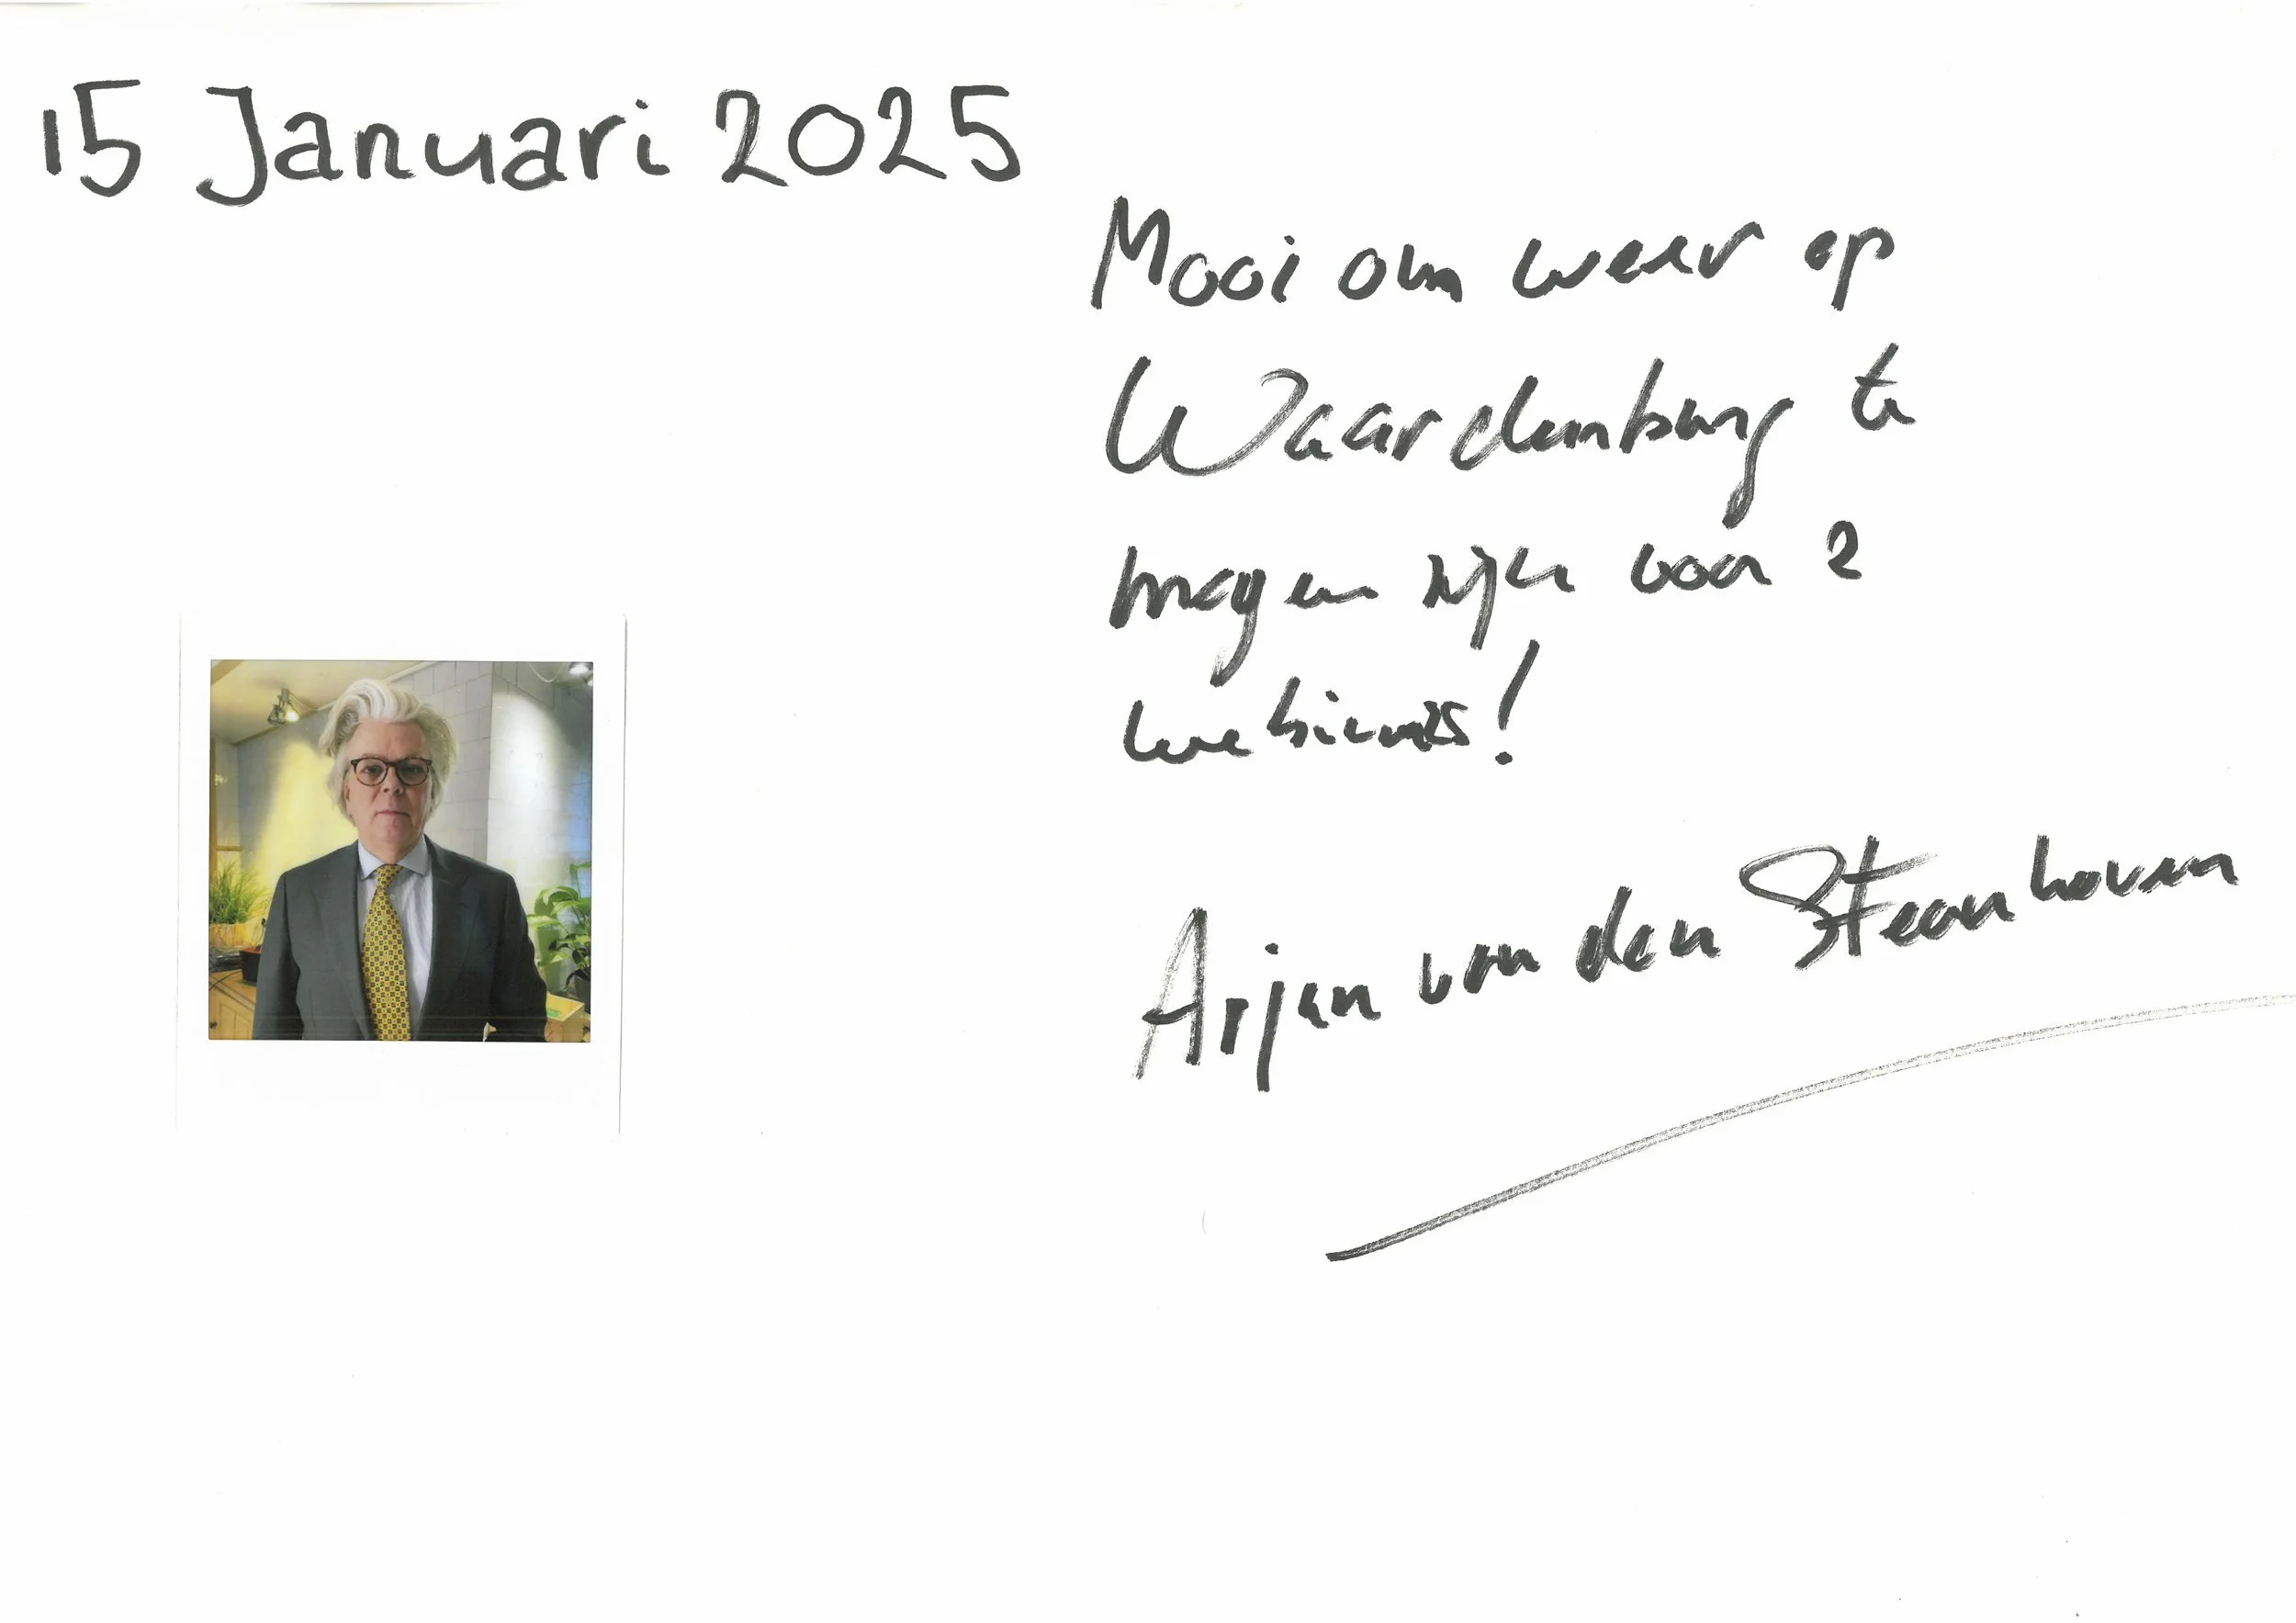 15 Januari 2025
Mooi om weer op
Waardenburg te
mogen zijn voor 2
webinars!
Arjan van den Steenhoven